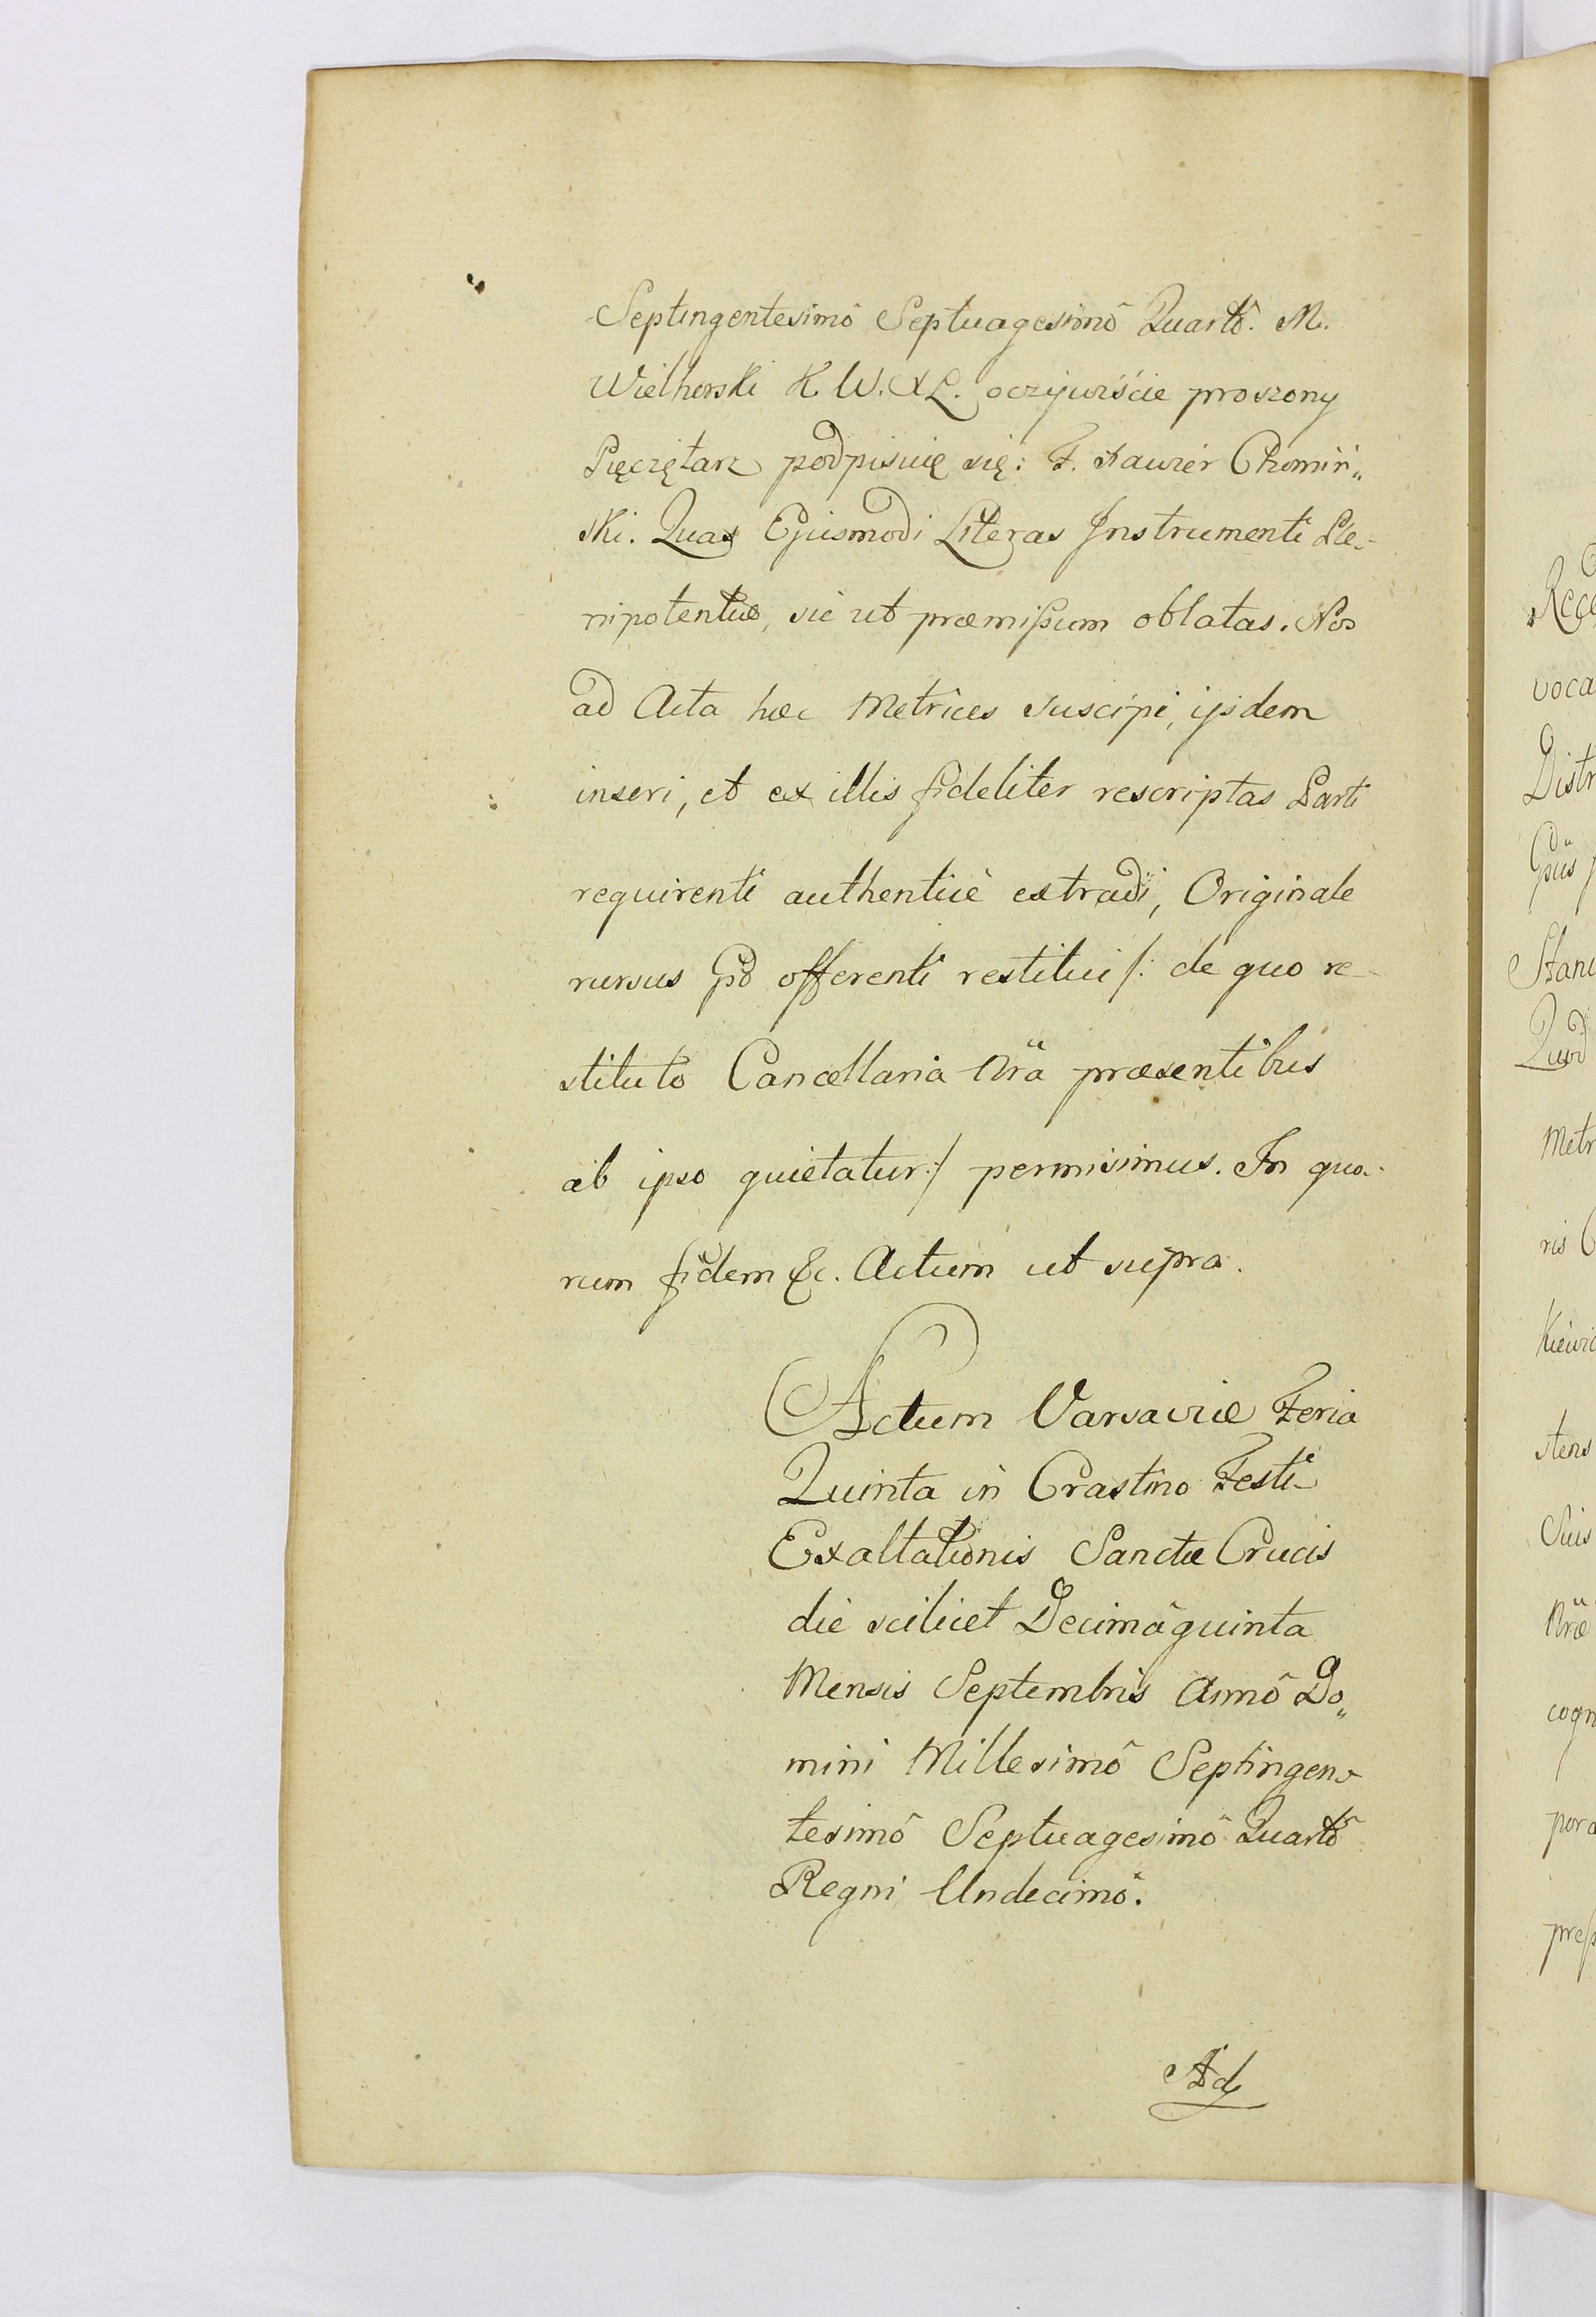 Septingentesimô Septuagesimô Quartô. M.
Wielhorski K. W. X L. oczywiście proszony
Pięczętarz podpisuię się: F. Xawier Chomiń„
ski. Quas Ejusmodi Literas Instrumenti Ple-
nipotentiæ, sic ut præmißum oblatas. Nos
ad Acta hæc Metrices suscipi, ijsdem
inseri, et ex illis fideliter rescriptas Parti
requirenti authenticè extradi, Originale
rursus offerenti restitui /: de quo re-
stituto Cancellaria Nra præsentibus
ab ipso quietatur :/ permisimus. In quo-
rum fidem &c. Actum ut supra.
Actum Varsaviæ Feria
Quinta in Crastino Festi
Exaltationis Sanctæ Crucis
die scilicet Decimâquinta
Mensis Septembris Annô Do„
mini Millesimô Septingen-
tesimô Septuagesimô Quartô
Regni Undecimô.
Ad
Rece
voca
Distr
Stani
Quod
Metr
ris
Kiewic
stens
Suis
Nræ
cogn
pora
preß